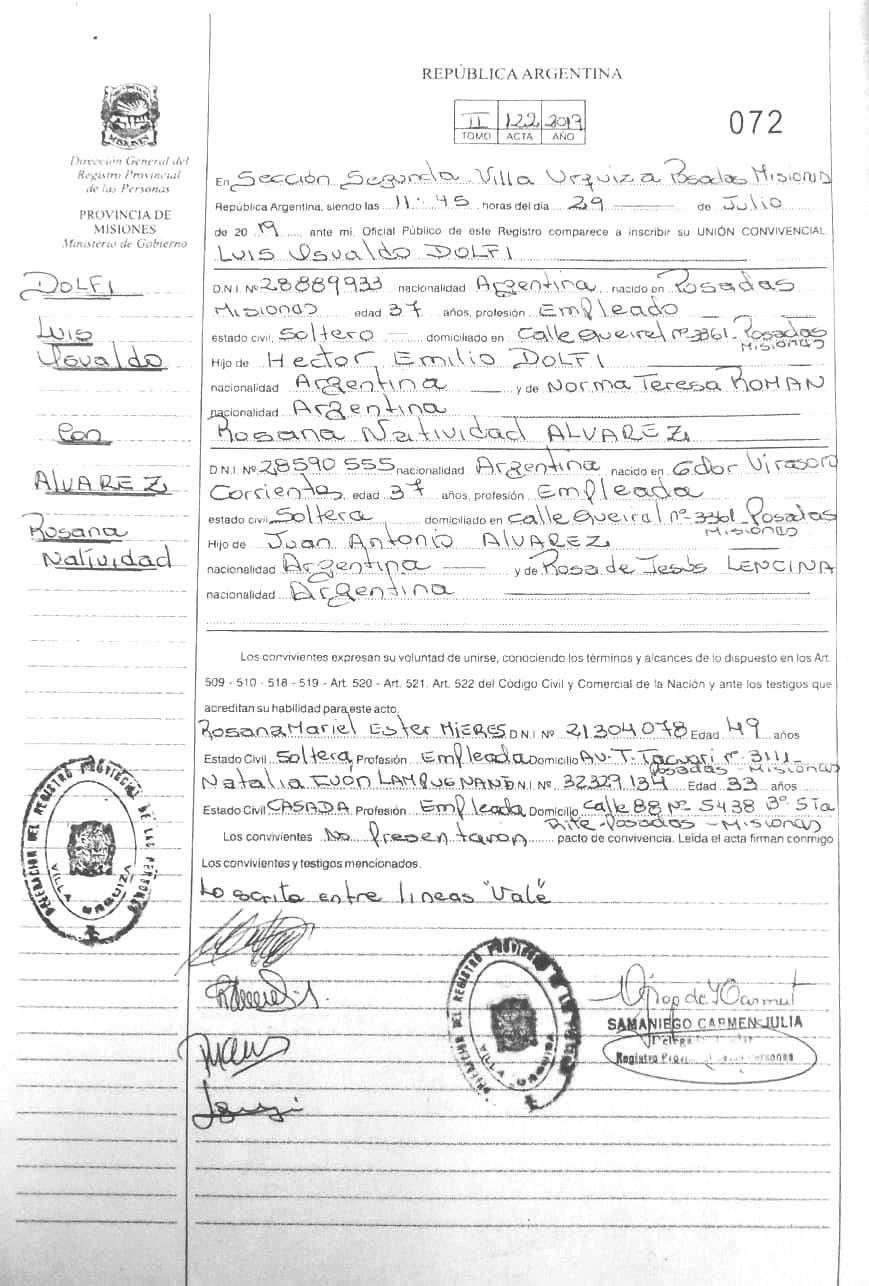 REPÚBLICA ARGENTINA
II 122 2019
TOMO ACTA AÑO
072
MISIONES
Dirección General del
Registro Provincial
de las Personas
PROVINCIA DE
MISIONES
Ministerio de Gobierno
DOLFI
Luis
Osvaldo
Con
ALVAREZ
Rosana
Natividad
En Sección Segunda Villa Urquiza Posadas Misiones
República Argentina, siendo las 11:45 horas del día 29 de Julio
de 2019, ante mi, Oficial Público de este Registro comparece a inscribir su UNIÓN CONVIVENCIAL
Luis Osvaldo DOLFI
D.N.I. Nº 28889933 nacionalidad Argentina nacido en Posadas
Misiones edad 37 años, profesión Empleado
estado civil, Soltero domiciliado en Calle Queirel nº 3361 - Posadas
Misiones
Hijo de Hector Emilio DOLFI
nacionalidad Argentina y de Norma Teresa ROMAN
nacionalidad Argentina
Rosana Natividad ALVAREZ
D.N.I. Nº 28590 555 nacionalidad Argentina nacido en Gdor Virasoro
Corrientes, edad 37 años, profesión Empleada
estado civil Soltera domiciliado en Calle Queirel nº 3361 - Posadas
Misiones
Hijo de Juan Antonio ALVAREZ
nacionalidad Argentina y de Rosa de Jesús LENCINA
nacionalidad Argentina
Los convivientes expresan su voluntad de unirse, conociendo los términos y alcances de lo dispuesto en los Art.
509 - 510 - 518 - 519 - Art. 520 - Art. 521. Art. 522 del Código Civil y Comercial de la Nación y ante los testigos que
acreditan su habilidad para este acto.
Rosana Mariel Ester MIERES D.N.I. Nº 21304078 Edad 49 años
Estado Civil Soltera, Profesión Empleada Domicilio Av. T. Tacuari nº 3111 -
Posadas - Misiones
Natalia Ivón LAMPUGNANI D.N.I. Nº 32329134 Edad 33 años
Estado Civil CASADA Profesión Empleada Domicilio Calle 88 Nº 5438 Bº Sta
Rita - Posadas - Misiones
Los convivientes No Presentaron pacto de convivencia. Leída el acta firman conmigo
Los convivientes y testigos mencionados.
Lo escrito entre lineas "Vale"
DELEGACION DEL REGISTRO PROVINCIAL DE LAS PERSONAS
VILLA URQUIZA
DELEGACION DEL REGISTRO PROVINCIAL DE LA
VILLA URQUIZA
SAMANIEGO CARMEN JULIA
Registro Personas